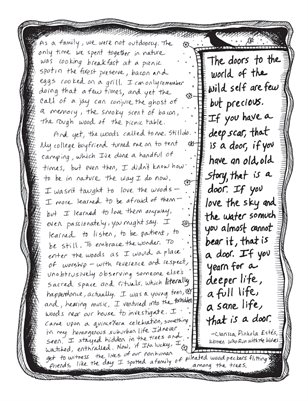 As a family, we were not outdoorsy. The
only time we spent together in nature
was cooking breakfast at a picnic
spot in the forest preserve, bacon and
eggs cooked on a grill. I can only remember
doing that a few times, and yet the
call of a jay can conjure the ghost of
a memory, the smoky scent of bacon,
the rough wood of the picnic table.
And yet, the woods called to me. Still do.
My college boyfriend turned me on to tent
camping, which I've done a handful of
times, but even then, I didn't know how
to be in nature the way I do now.
I wasn't taught to love the woods—
I more learned to be afraid of them—
but I learned to love them anyway,
even passionately, you might say. I
learned to listen, to be patient, to
be still. To embrace the wonder. To
enter the woods as I would a place
of worship — with reverence and respect,
unobtrusively observing someone else's
sacred space and rituals, which literally
happened once, actually. I was a young teen,
and, hearing music, I ventured into the forbidden
woods near our house to investigate. I
came upon a quinceñera celebration, something
in my homogenous suburban life I'd never
seen. I stayed hidden in the trees and
watched, enthralled. Now, if I'm lucky, I
get to witness the lives of our nonhuman
friends, like the day I spotted a family of pileated woodpeckers flitting
among the trees.
The doors to the
world of the
wild self are few
but precious.
If you have a
deep scar, that
is a door, if you
have an old, old
story, that is a
door. If you
love the sky and
the water so much
you almost cannot
bear it, that is
a door. If you
yearn for a
deeper life,
a full life,
a sane life,
that is a door.
—Clarissa Pinkola Estés,
Women Who Run with the Wolves